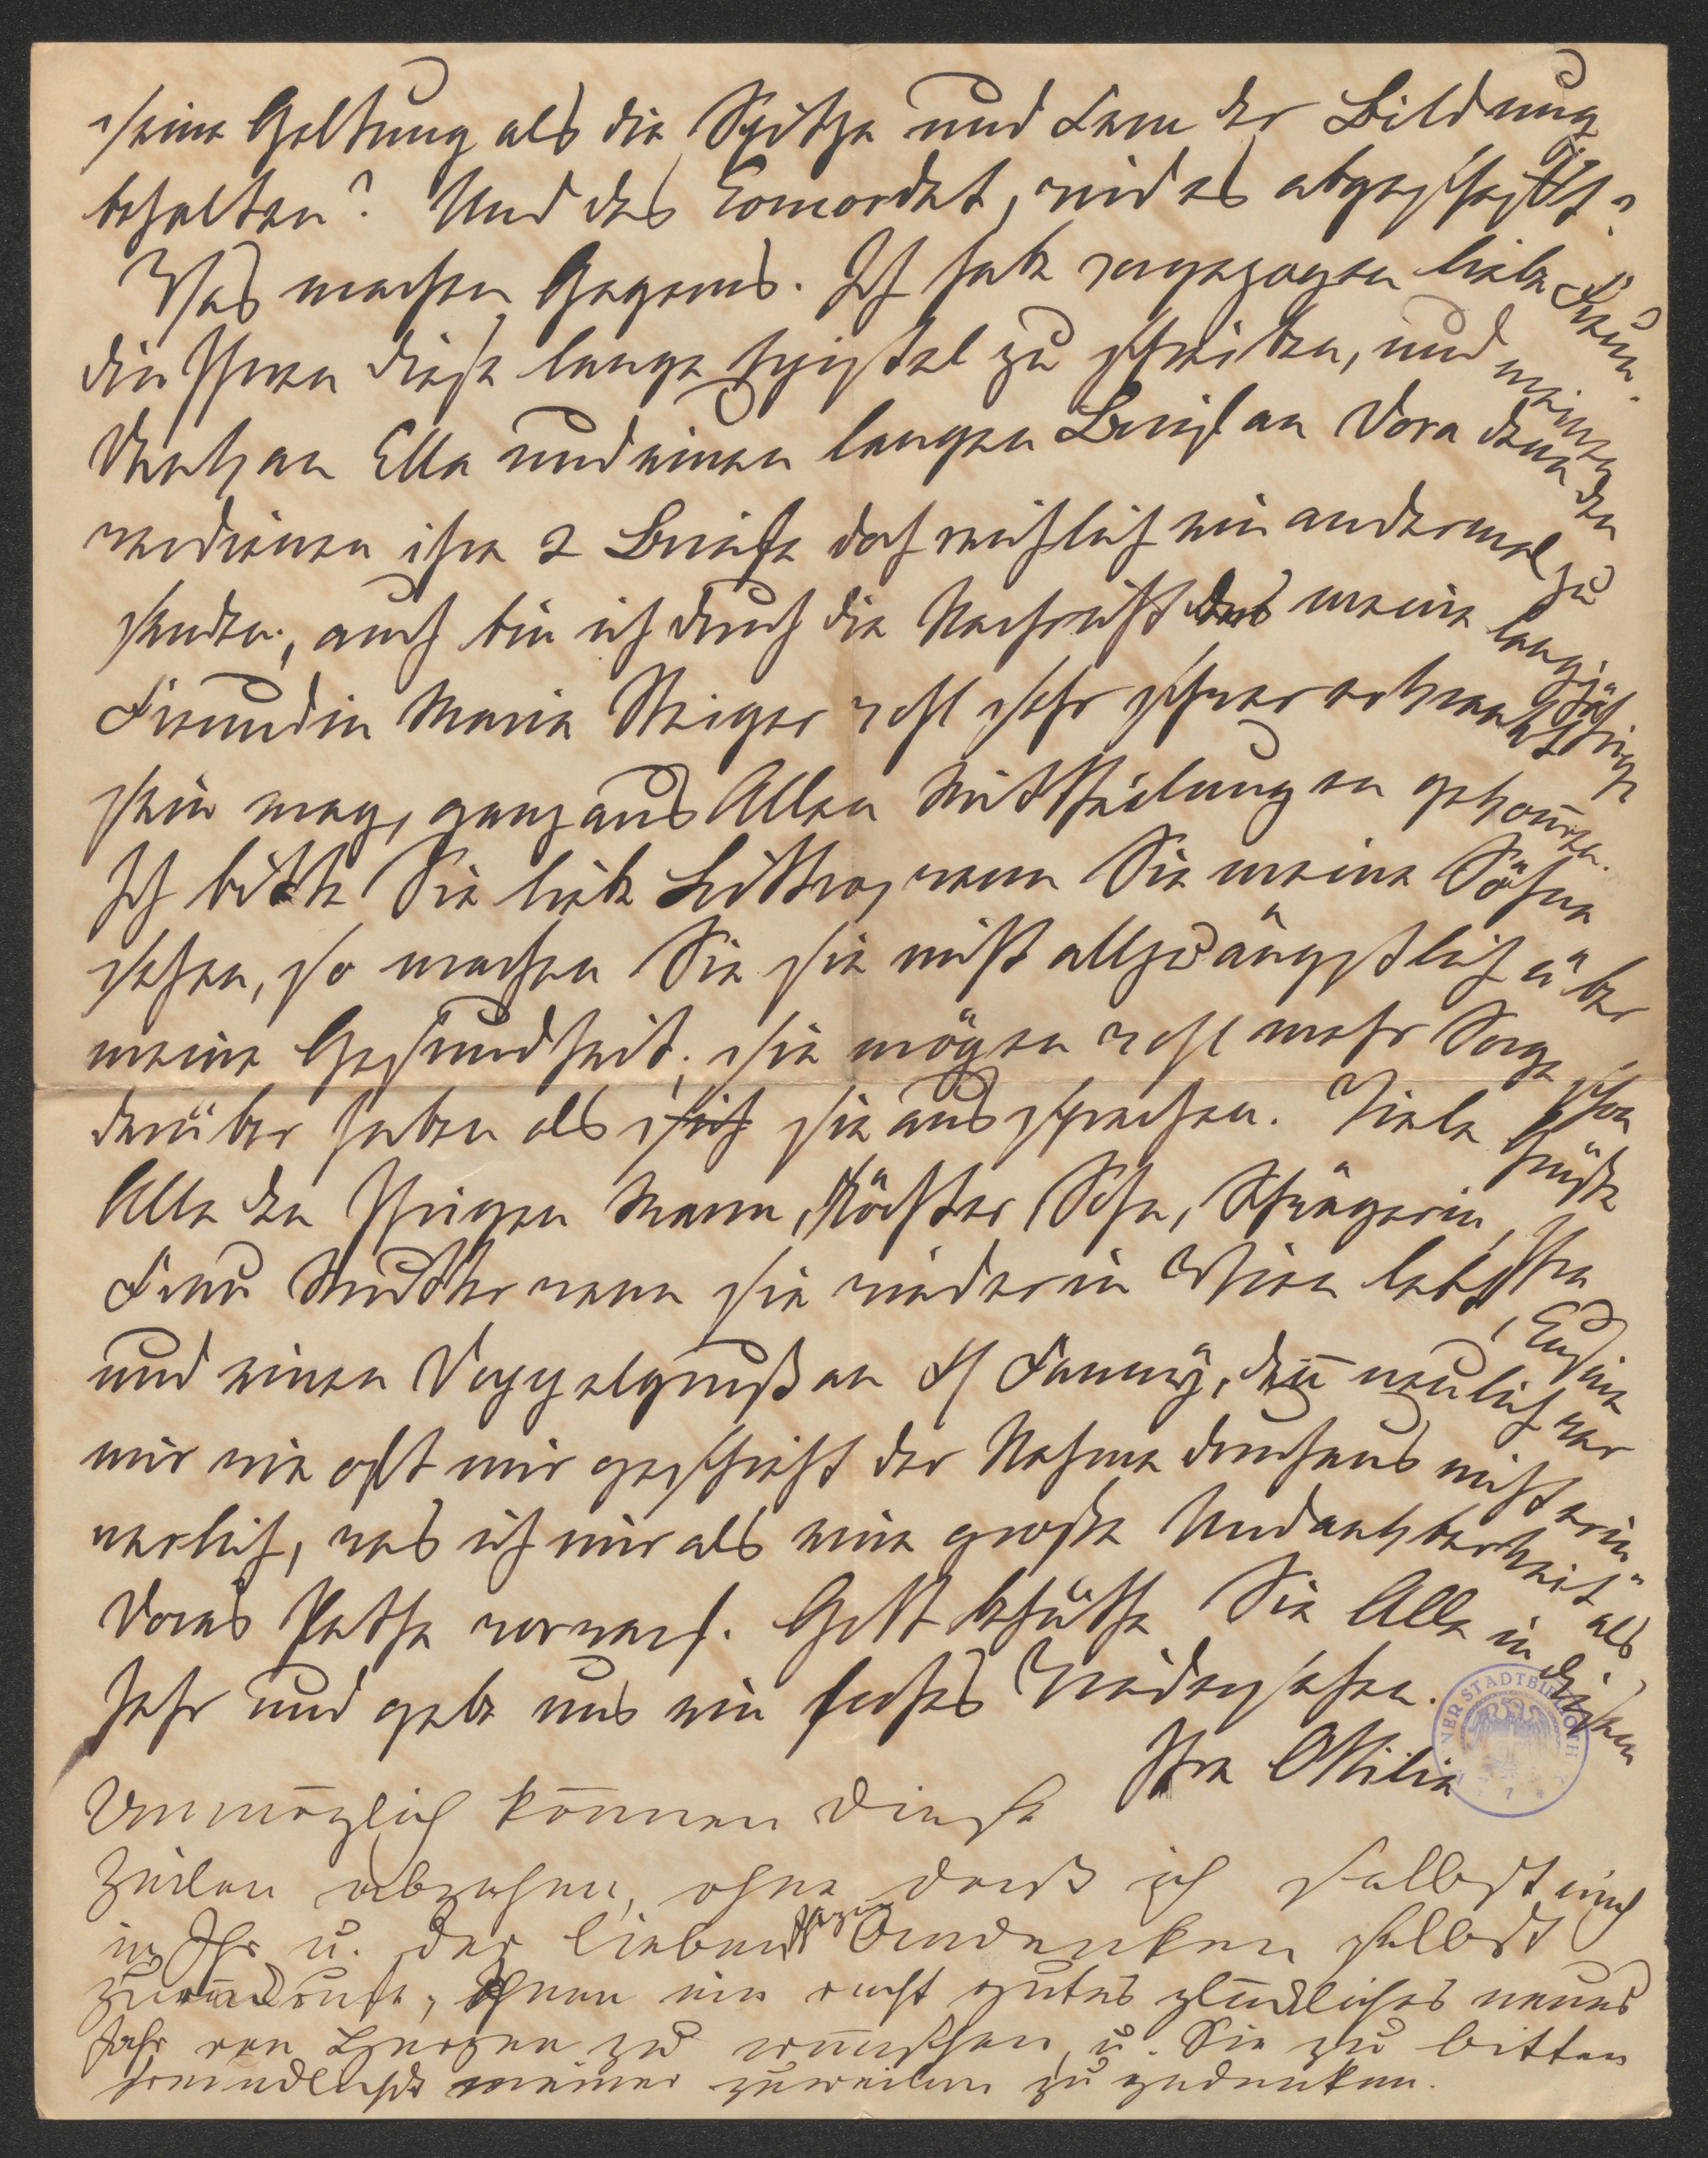 seine Geltung als die Spitze und Kern der Bildung
behalten? Und das Concordat, wird es abgeschafft?
Was machen Gagerns. Ich habe vorgezogen liebe Freun-
din Ihnen diese lange Epistel zu schreiben, und meinen
Dank an Ella und einen langen Brief an Dora denn den
verdienen ihre 2 Briefe doch reichlich ein andermal zu
senden; auch bin ich durch die Nachricht das meine langjährige
Freundin Maria Steiger wohl sehr schwer erkrankt
sein mag, ganz aus Allen Mittheilungen gekommen.
Ich bitte Sie liebe Littrow, wenn Sie meine Söhne
sehen, so machen Sie sie nicht allzu ängstlich über
meine Gesundheit; sie mögen wohl mehr Sorge schon
darüber haben als sich sie aussprechen. Viele Grüße
Alle den Ihrigen Mann, Töchter, Sohn, Schwägerin, Ihre
Frau Mutter wenn sie wieder in Wien lebt,
und einen Doppelgruß an Fr Fanny, denn neulich war
mir wie oft mir geschieht der Nahme durchaus nicht erin-
nerlich, was ich mir als eine große Undankbarkeit als
Doras Pathe vorwarf. Gott behüthe Sie Alle in diesem
Jahr und gebe uns ein frohes Wiedersehen.
Ihre Ottilie
Unmöglich können diese
Zeilen abgehen, ohne daß ich selbst mich
in Ihr u. der lieben Ihrigen Andenken selbst
zurückrufe, Ihnen ein recht gutes glückliches neues
Jahr von Herzen zu wünschen, u. Sie zu bitten
freundlichst meiner zuweilen zu gedenken.